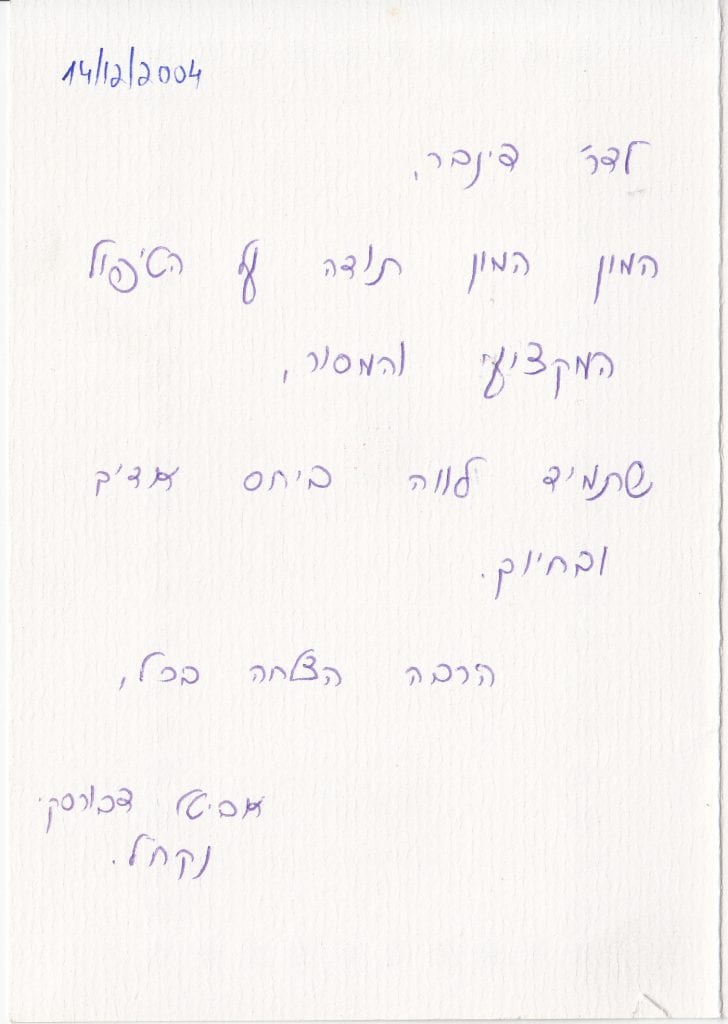 14/12/2004
לדר' פינבר,
המון המון תודה על הטיפול
המקצועי והמסור,
שתמיד לווה ביחס אדיב
ובחיוך.
הרבה הצלחה בכל,
אביטל דבורסקי
נקח"ל.